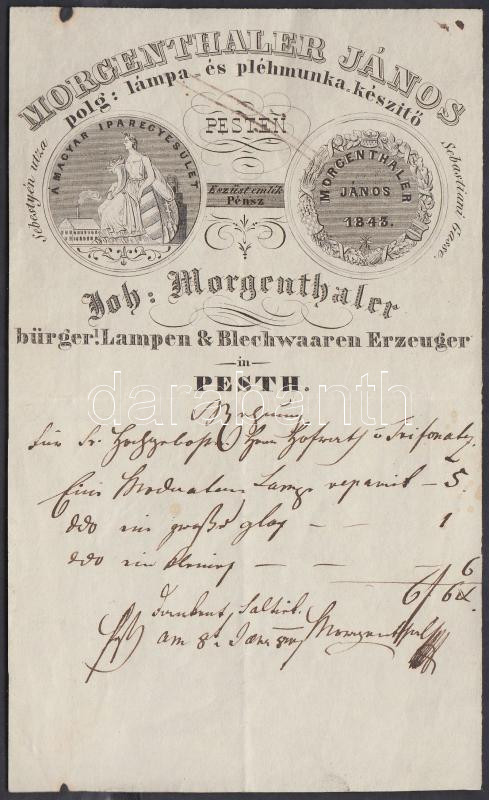 MORGENTHALER JÁNOS
polg: lámpa és pléhmunka készitő
PESTEN
Sebestyén utza
Sebastiani Gasse.
A MAGYAR IPAREGYESÜLET
Ezüst emlék
Pénsz
MORGENTHALER
JÁNOS
1843.
Joh: Morgenthaler
bürgerl. Lampen & Blechwaaren Erzeuger
in
PESTH.
darabanth
Rechnung
Für Sr Hochgeboren Herrn Hofrath v
Eine Lampe reparirt – 5.
ddo ein großes glas – – 1
ddo ein kleines – – 6
6 f 6 x.
Dankend
Pest am 8. Morgenthaler